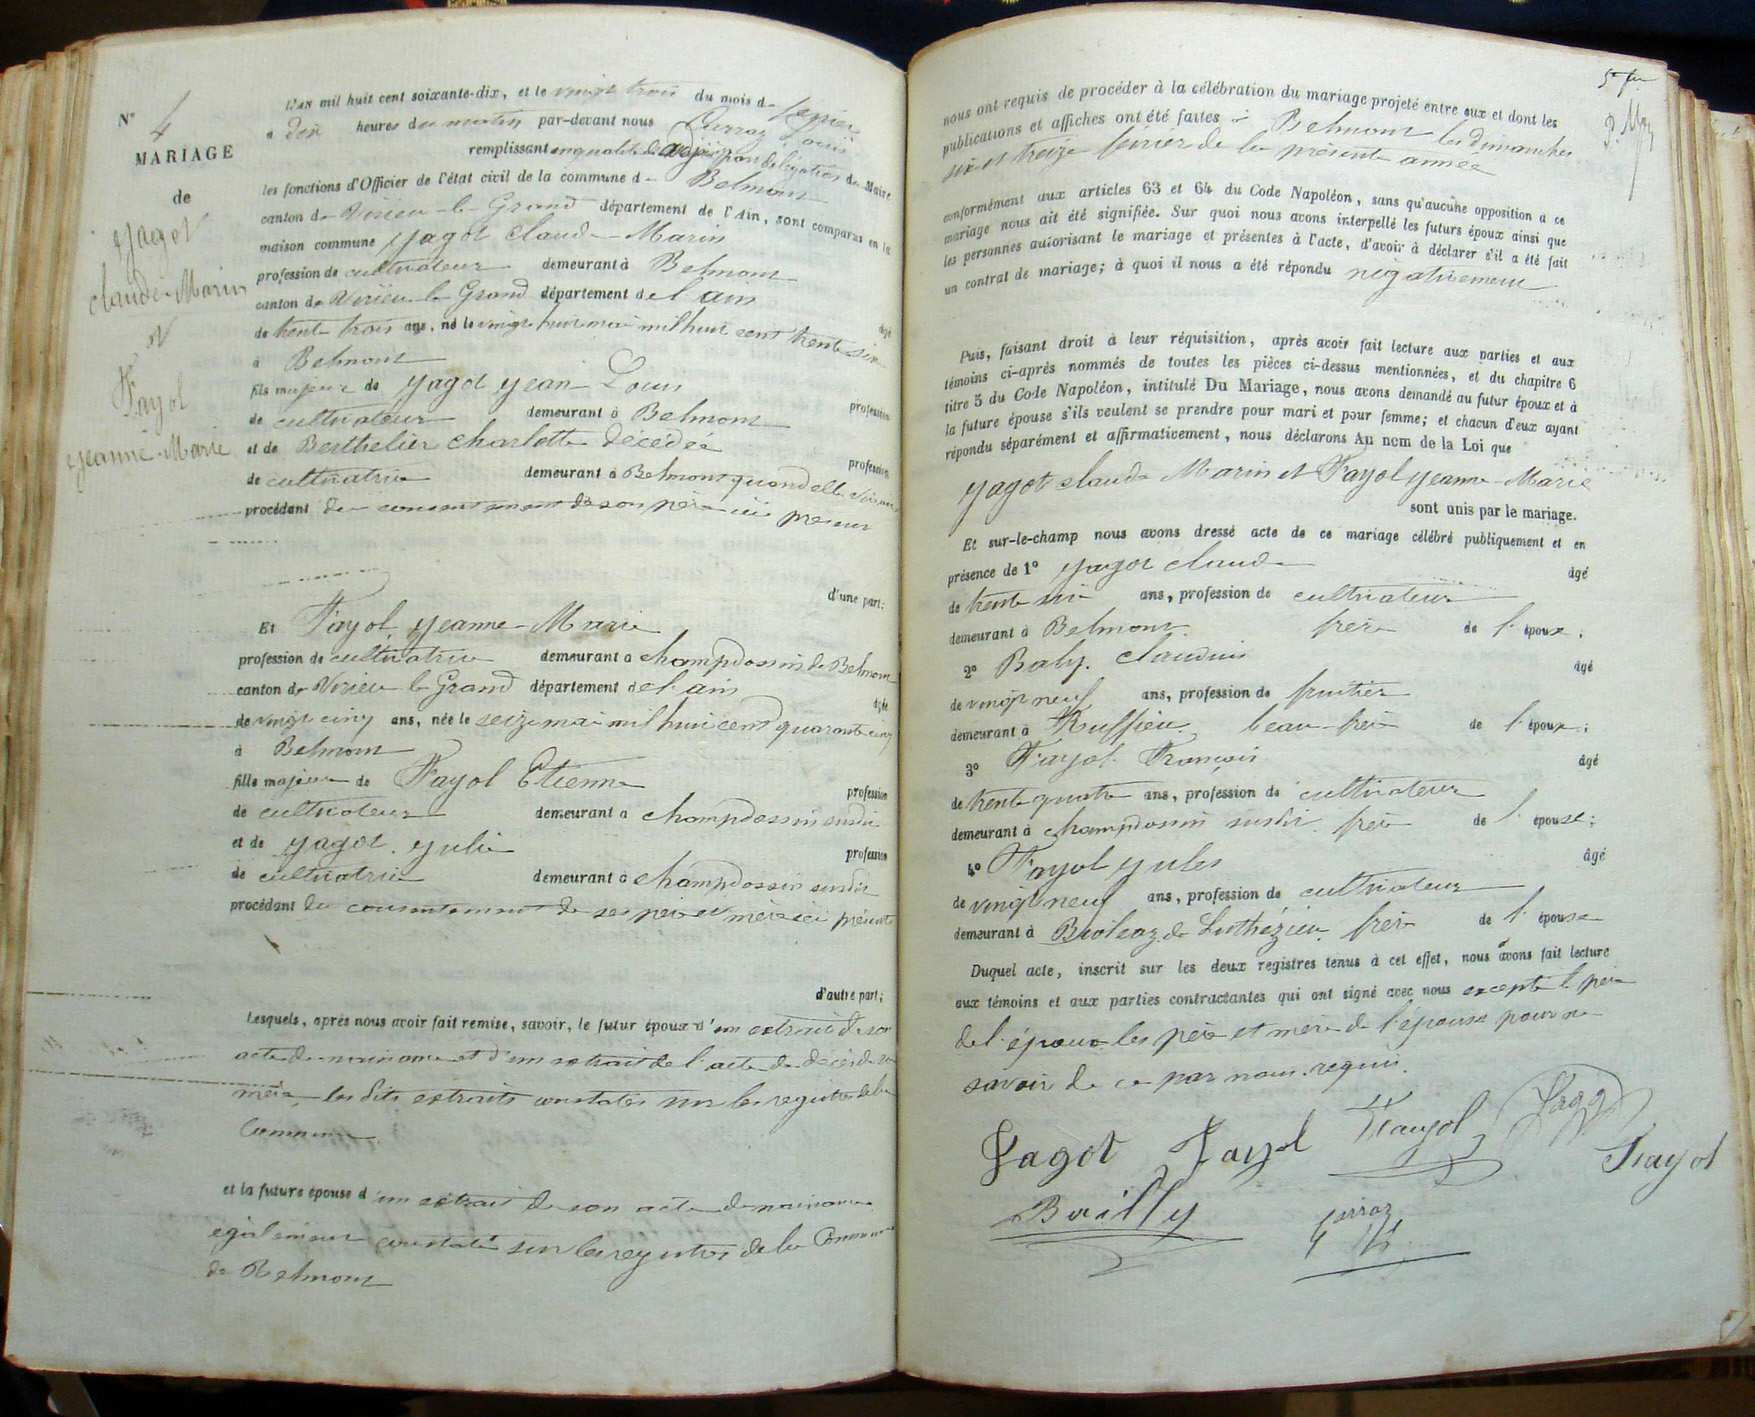 N° 4
MARIAGE
de
Yagot
Claude-Marin
et
Fayol
Yeanne-Marie
L'an mil huit cent soixante-dix, et le vingt trois du mois de février
à dix heures du matin par-devant nous Curraz Louis
remplissant en qualité d'adjoint par délégation du Maire
les fonctions d'Officier de l'état civil de la commune de Belmont
canton de Virieu-le-Grand département de l'Ain, sont comparus en la
maison commune Yagot Claude-Marin
profession de cultivateur demeurant à Belmont
canton de Virieu le Grand département de l'ain
âgé
de trente trois ans, né le vingt huit mai mil huit cent trente six
à Belmont
fils majeur de Yagot Yean-Louis
profession
de cultivateur demeurant à Belmont
et de Berthelier Charlotte décédée
profession
de cultivatrice demeurant à Belmont quand elle vivait
procédant du consentement de son père ici présent
d'une part;
Et Fayol, Yeanne-Marie
profession de cultivatrice demeurant à Champdossin de Belmont
canton de Virieu le Grand département de l'ain
âgée
de vingt cinq ans, née le seize mai mil huit cent quarante cinq
à Belmont
fille majeure de Fayol Etienne
profession
de cultivateur demeurant à Champdossin susdit
et de Yagot. Yulie
profession
de cultivatrice demeurant à Champdossin susdit
procédant du consentement de ses père et mère ici présents
d'autre part;
Lesquels, après nous avoir fait remise, savoir, le futur époux d'un extrait de son
acte de naissance et d'un extrait de l'acte de décès de sa
mère, les dits extraits constatés sur les registres de la
Commune.
et la future épouse d'un extrait de son acte de naissance
également constaté sur les registres de la Commune
de Belmont
nous ont requis de procéder à la célébration du mariage projeté entre eux et dont les
publications et affiches ont été faites à Belmont les dimanches
six et treize février de la présente année
conformément aux articles 63 et 64 du Code Napoléon, sans qu'aucune opposition a ce
mariage nous ait été signifiée. Sur quoi nous avons interpellé les futurs époux ainsi que
les personnes autorisant le mariage et présentes à l'acte, d'avoir à déclarer s'il a été fait
un contrat de mariage; à quoi il nous a été répondu négativement
Puis, faisant droit à leur réquisition, après avoir fait lecture aux parties et aux
témoins ci-après nommés de toutes les pièces ci-dessus mentionnées, et du chapitre 6
titre 5 du Code Napoléon, intitulé Du Mariage, nous avons demandé au futur époux et à
la future épouse s'ils veulent se prendre pour mari et pour femme; et chacun d'eux ayant
répondu séparément et affirmativement, nous déclarons Au nom de la Loi que
Yagot Claude Marin et Fayol Yeanne-Marie
sont unis par le mariage.
Et sur-le-champ nous avons dressé acte de ce mariage célébré publiquement et en
présence de 1° Yagot Claude
âgé
de trente six ans, profession de cultivateur
demeurant à Belmont. frère de l'époux;
2° Baly. Claudius
âgé
de vingt neuf ans, profession de fruitier
demeurant à Ruffieu. beau-frère de l'époux;
3° Fayol François
âgé
de trente quatre ans, profession de cultivateur
demeurant à Champdossin susdit. frère de l'épouse;
4° Fayol Yules
âgé
de vingt neuf ans, profession de cultivateur
demeurant à Bioleaz de Luthézieu. frère de l'épouse
Duquel acte, inscrit sur les deux registres tenus à cet effet, nous avons fait lecture
aux témoins et aux parties contractantes qui ont signé avec nous excepté le père
de l'époux les père et mère de l'épouse pour ne
savoir de ce par nous requis.
Jagot Fayol Fayol Jagot
Fayol
Bailly